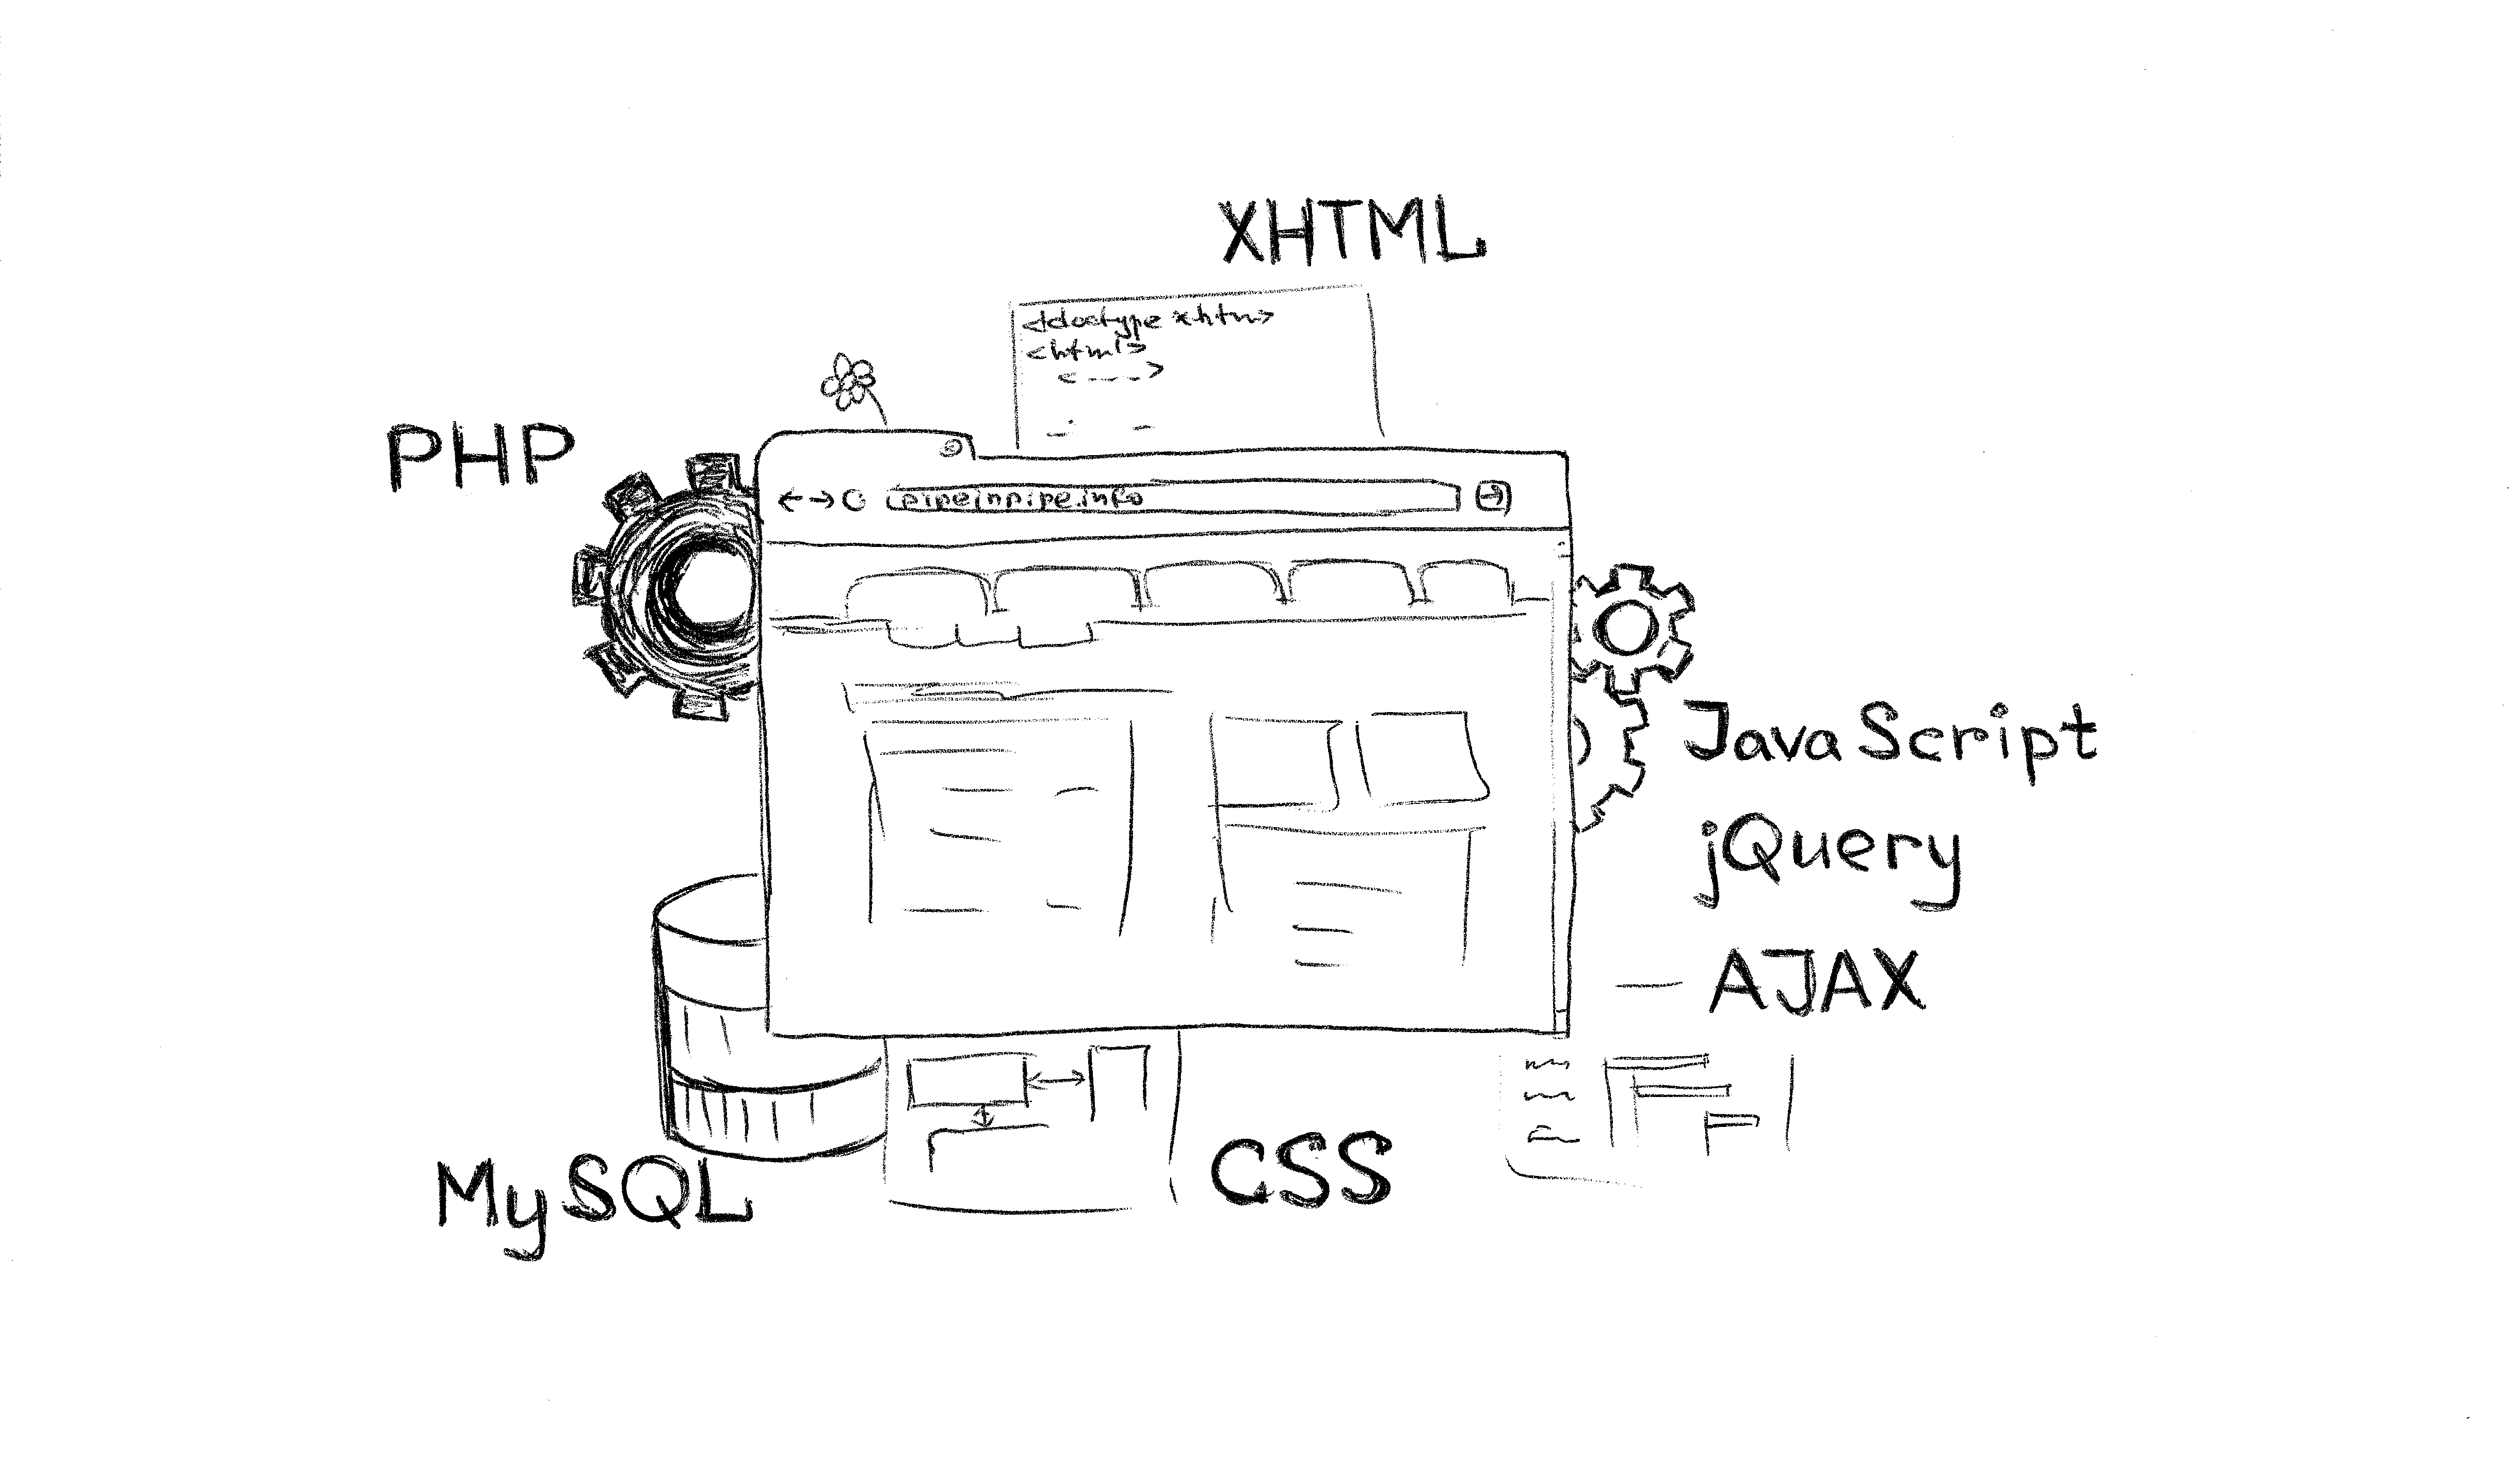 XHTML
<!doctype xhtm>
<html>
<---->
PHP
pipeinpipe.info
JavaScript
jQuery
AJAX
MySQL
CSS